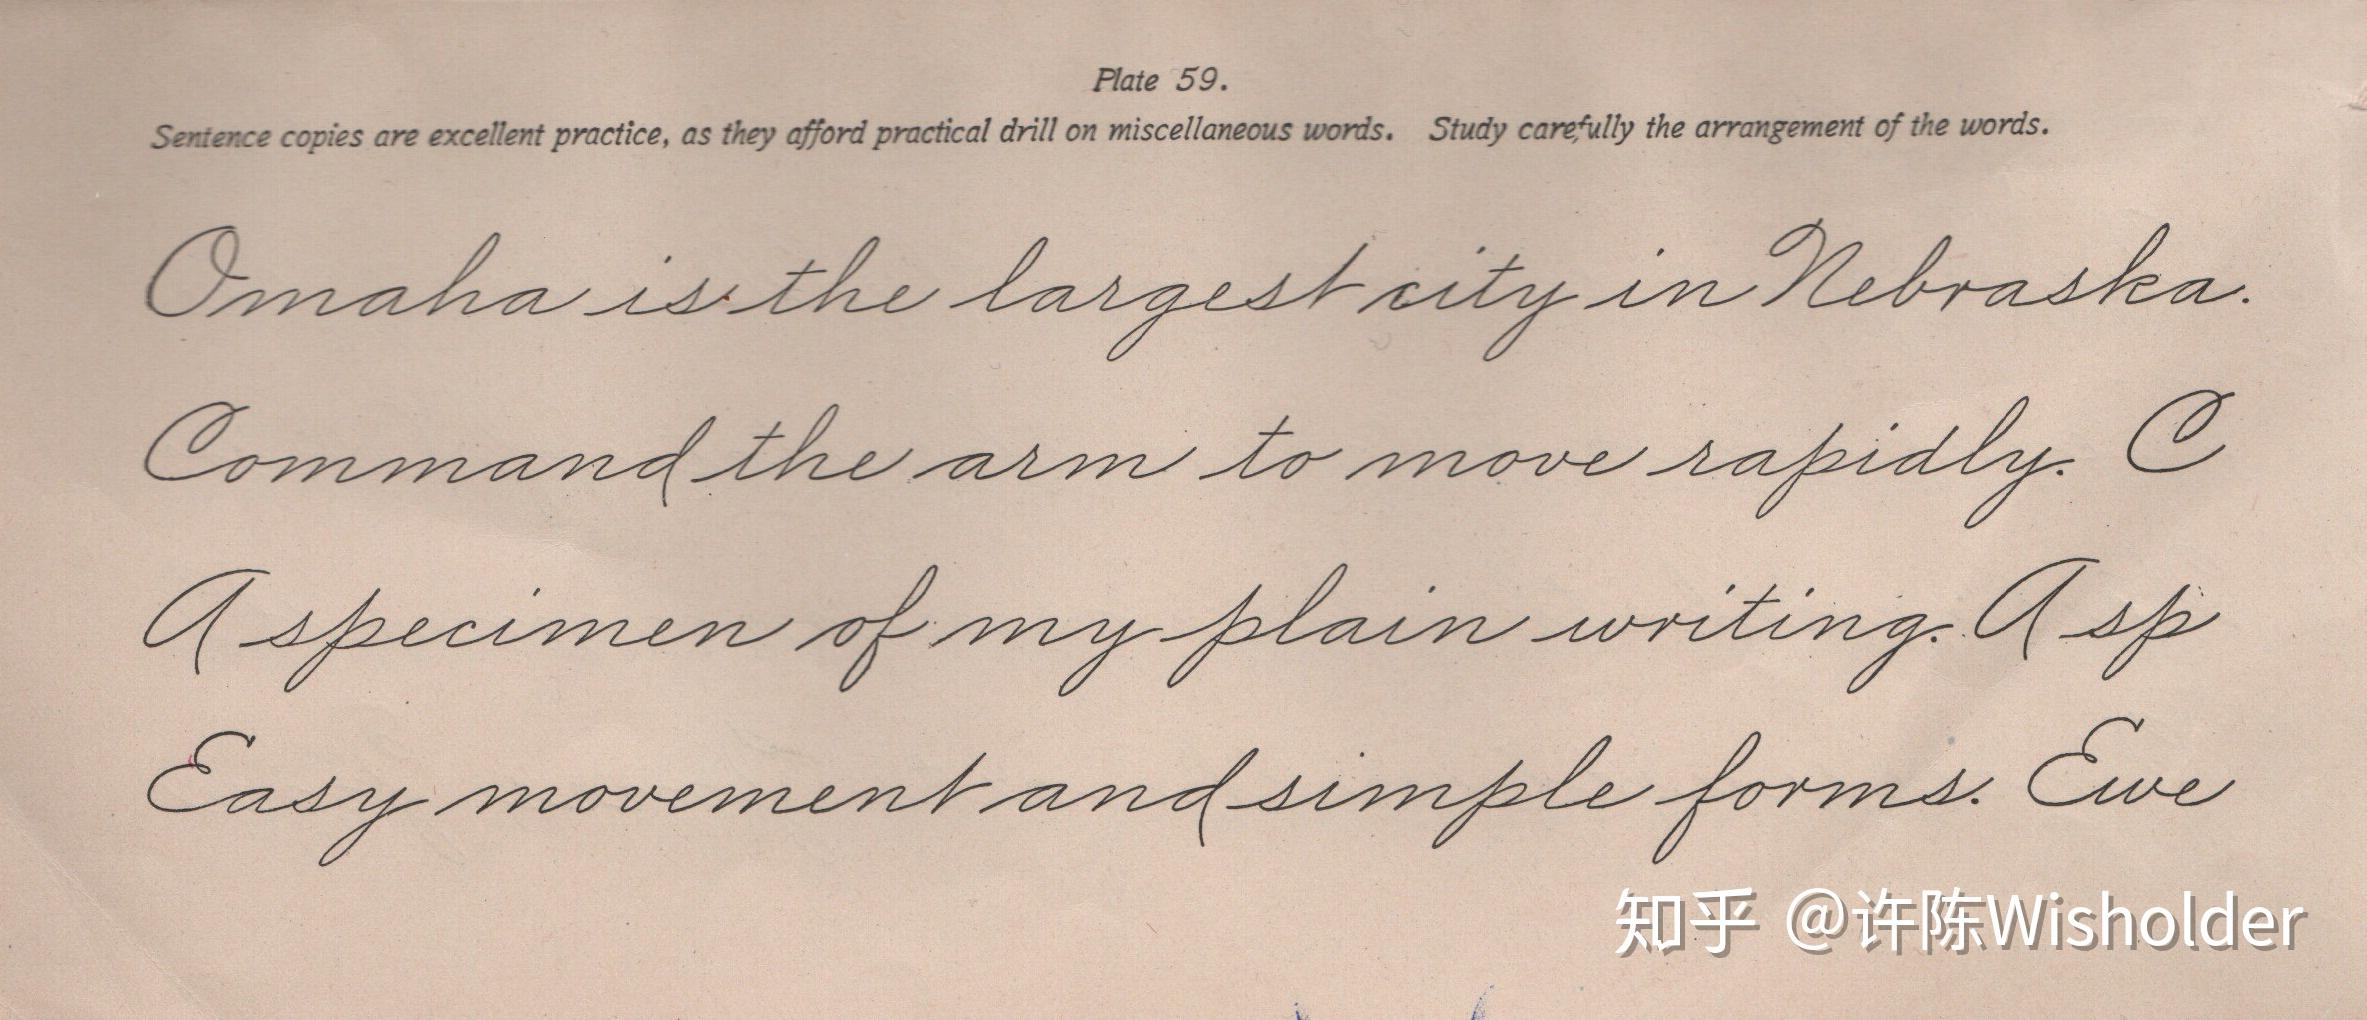 Plate 59.
Sentence copies are excellent practice, as they afford practical drill on miscellaneous words. Study carefully the arrangement of the words.
Omaha is the largest city in Nebraska.
Command the arm to move rapidly. C
A specimen of my plain writing. A sp
Easy movement and simple forms. Ewe
知乎 @许陈Wisholder